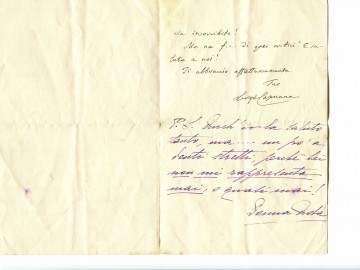 Ma no f... di quei critici! E
a noi!
Ti abbraccio affettuosamente
Tuo
Luigi Capuana
P. S. Anch'io La saluto
tanto, ma .... un po' a
denti stretti, perchè Lei
non mi rappresenta
mai, o quasi mai!